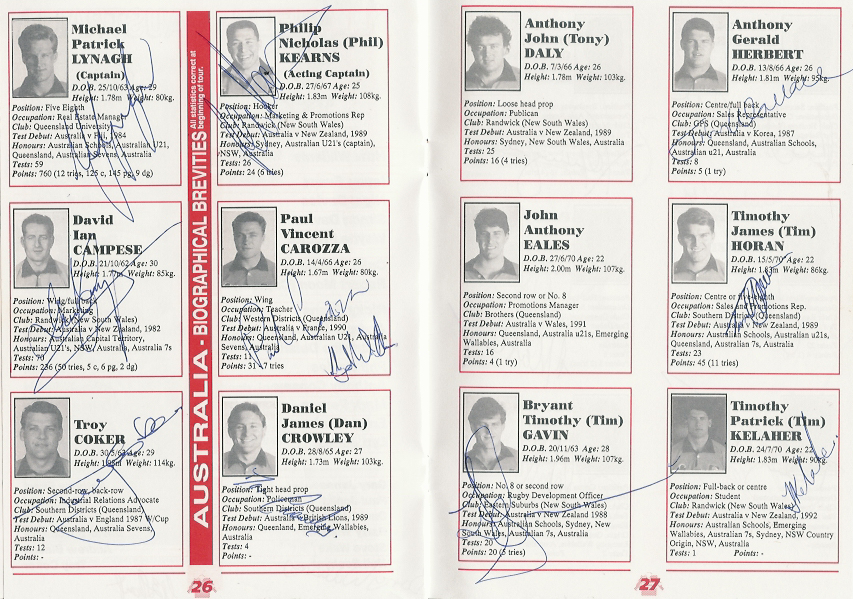 Michael
Patrick
LYNAGH
(Captain)
D.O.B. 25/10/63 Age: 29
Height: 1.78m Weight: 80kg.
Position: Five Eighth
Occupation: Real Estate Manager
Club: Queensland University
Test Debut: Australia v Fiji, 1984
Honours: Australian Schools, Australia U21,
Queensland, Australian Sevens, Australia
Tests: 59
Points: 760 (12 tries, 125 c, 145 pg, 9 dg)
David
Ian
CAMPESE
D.O.B. 21/10/62 Age: 30
Height: 1.77m Weight: 85kg.
Position: Wing/fullback
Occupation: Marketing
Club: Randwick (New South Wales)
Test Debut: Australia v New Zealand, 1982
Honours: Australian Capital Territory,
Australian U21's, NSW, Australia, Australia 7s
Tests: 70
Points: 236 (50 tries, 5 c, 6 pg, 2 dg)
Troy
COKER
D.O.B. 30/5/63 Age: 29
Height: 1.98m Weight: 114kg.
Position: Second-row, back-row
Occupation: Industrial Relations Advocate
Club: Southern Districts (Queensland)
Test Debut: Australia v England 1987 W/Cup
Honours: Queensland, Australia Sevens,
Australia
Tests: 12
Points: -
AUSTRALIA - BIOGRAPHICAL BREVITIES
All statistics correct at
beginning of tour.
Philip
Nicholas (Phil)
KEARNS
(Acting Captain)
D.O.B. 27/6/67 Age: 25
Height: 1.83m Weight: 108kg.
Position: Hooker
Occupation: Marketing & Promotions Rep
Club: Randwick (New South Wales)
Test Debut: Australia v New Zealand, 1989
Honours: Sydney, Australian U21's (captain),
NSW, Australia
Tests: 26
Points: 24 (6 tries)
Paul
Vincent
CAROZZA
D.O.B. 14/4/66 Age: 26
Height: 1.67m Weight: 80kg.
Position: Wing
Occupation: Teacher
Club: Western Districts (Queensland)
Test Debut: Australia v France, 1990
Honours: Queensland, Australian U21, Australia
Sevens, Australia
Tests: 11
Points: 31 - 7 tries
Daniel
James (Dan)
CROWLEY
D.O.B. 28/8/65 Age: 27
Height: 1.73m Weight: 103kg.
Position: Tight head prop
Occupation: Policeman
Club: Southern Districts (Queensland)
Test Debut: Australia v British Lions, 1989
Honours: Queenland, Emerging Wallabies,
Australia
Tests: 4
Points: -
26
Anthony
John (Tony)
DALY
D.O.B. 7/3/66 Age: 26
Height: 1.78m Weight: 103kg.
Position: Loose head prop
Occupation: Publican
Club: Randwick (New South Wales)
Test Debut: Australia v New Zealand, 1989
Honours: Sydney, New South Wales, Australia
Tests: 25
Points: 16 (4 tries)
John
Anthony
EALES
D.O.B. 27/6/70 Age: 22
Height: 2.00m Weight: 107kg.
Position: Second row or No. 8
Occupation: Promotions Manager
Club: Brothers (Queensland)
Test Debut: Australia v Wales, 1991
Honours: Queensland, Australia u21s, Emerging
Wallabies, Australia
Tests: 16
Points: 4 (1 try)
Bryant
Timothy (Tim)
GAVIN
D.O.B. 20/11/63 Age: 28
Height: 1.96m Weight: 107kg.
Position: No. 8 or second row
Occupation: Rugby Development Officer
Club: Eastern Suburbs (New South Wales)
Test Debut: Australia v New Zealand 1988
Honours: Australian Schools, Sydney, New
South Wales, Australian 7s, Australia
Tests: 20
Points: 20 (5 tries)
Anthony
Gerald
HERBERT
D.O.B. 13/8/66 Age: 26
Height: 1.81m Weight: 95kg.
Position: Centre/full back
Occupation: Sales Representative
Club: GPS (Queensland)
Test Debut: Australia v Korea, 1987
Honours: Queensland, Australian Schools,
Australian u21, Australia
Tests: 8
Points: 5 (1 try)
Timothy
James (Tim)
HORAN
D.O.B. 15/5/70 Age: 22
Height: 1.83m Weight: 86kg.
Position: Centre or five-eighth
Occupation: Sales and Promotions Rep.
Club: Southern Districts (Queensland)
Test Debut: Australia v New Zealand, 1989
Honours: Australian Schools, Australian u21s,
Queensland, Australian 7s, Australia
Tests: 23
Points: 45 (11 tries)
Timothy
Patrick (Tim)
KELAHER
D.O.B. 24/7/70 Age: 22
Height: 1.83m Weight: 90kg.
Position: Full-back or centre
Occupation: Student
Club: Randwick (New South Wales)
Test Debut: Australia v New Zealand, 1992
Honours: Australian Schools, Emerging
Wallabies, Australian 7s, Sydney, NSW Country
Origin, NSW, Australia
Tests: 1 Points: -
27